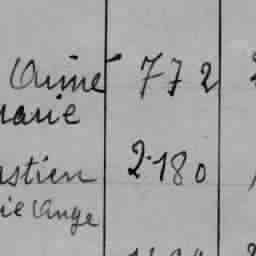 Aimé 772
Marie
astien 2.180
ie Ange